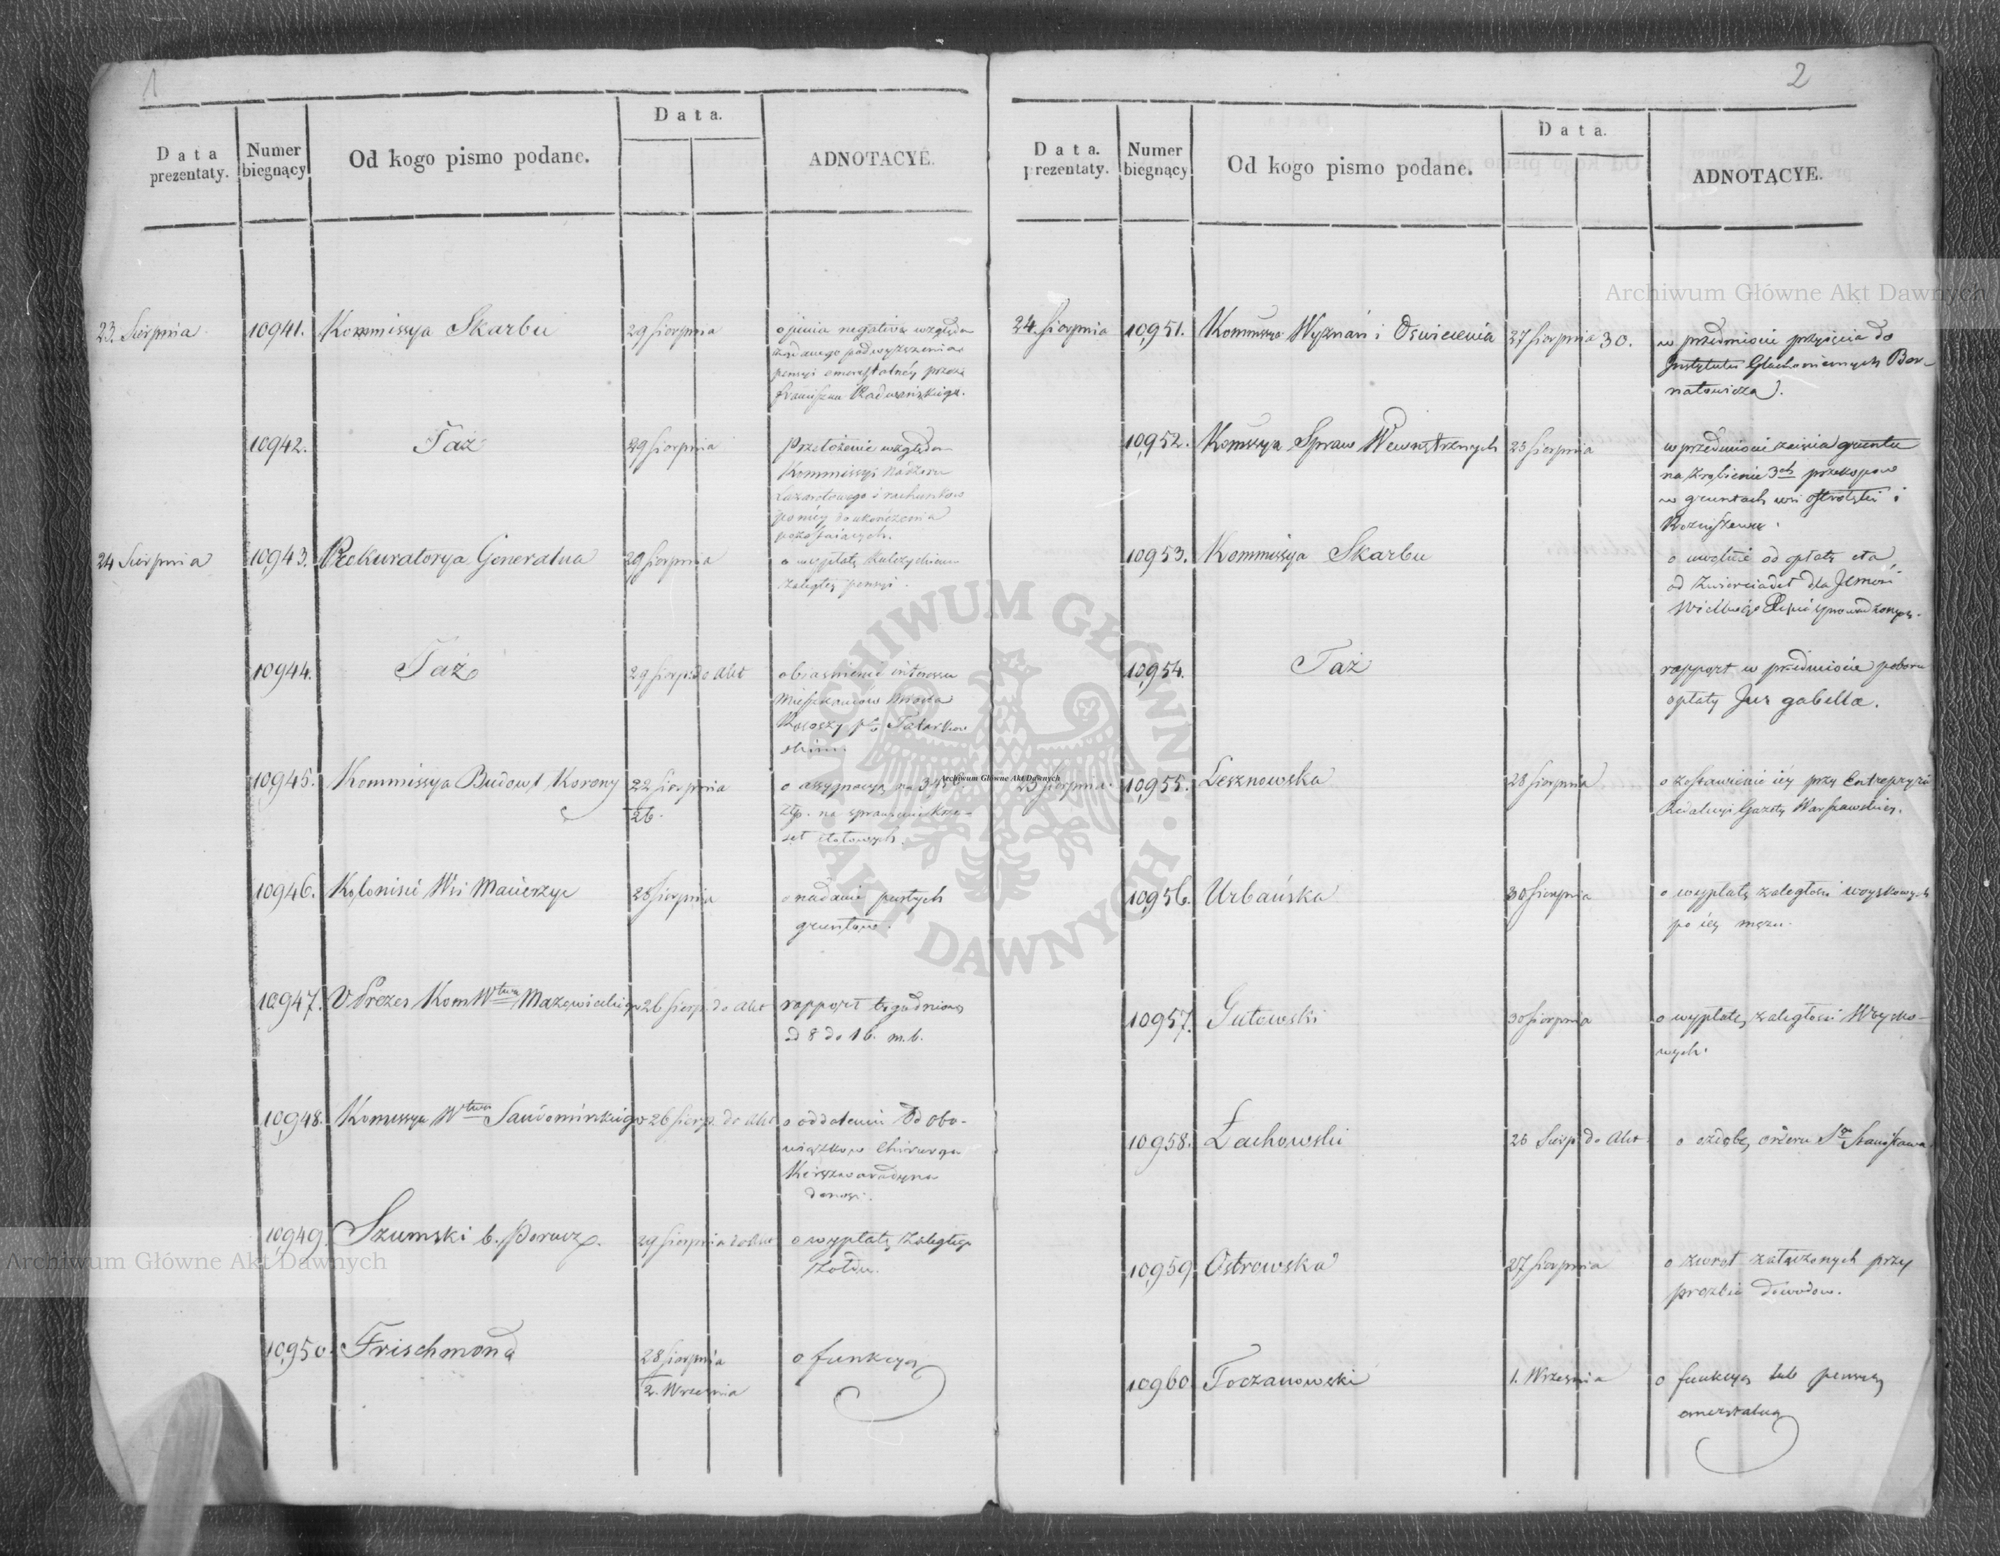 1
Data prezentaty.
Numer biegnący
Od kogo pismo podane.
Data.
ADNOTACYE.
23. Sierpnia
10941.
Kommissya Skarbu
29 Sierpnia
opinia negativa względem
żądanego podwyższenia
pensyi emerytalnéy przez
10942.
Taż
29 Sierpnia
Przełożenie względem
Kommissyi Nadzoru
Lazaretowego i rachunków
do ukończenia
pozostaiących.
24 Sierpnia
10943.
Prokuratorya Generalna
29 Sierpnia
o wypłatę
zaległey pensyi.
10944.
Taż
29 Sierp. do Akt
obiaśnienie interessu
Mieszkańców Miasta
10945.
Kommissya Budowl Korony
22 Sierpnia
26.
o assygnacyą na
Złp. na sprawienie krze-
seł
10946.
Koloniści Wsi Macierzysz
28 Sierpnia
o nadanie pustych
gruntów.
10947.
V Prezes Kom Wtwa Mazowieckiego
26 Sierp. do Akt
rapport tygodniowy
od 8 do 16. m. b.
10948.
Komissya Wtwa Sandomirskiego
26 Sierp. do Akt
o oddaleniu od obo-
wiązków Chirurga
10949.
Szumski b. Porucz.
29 Sierpnia do Akt
o wypłatę zaległego
żołdu.
10950.
Frischmond
28 Sierpnia
2. Września
o funkcyą
2
Data. prezentaty.
Numer biegnący
Od kogo pismo podane.
Data.
ADNOTACYE.
24 Sierpnia
10,951.
Kommissya Wyznań i Oświecenia
27 Sierpnia 30.
w przedmiocie przyięcia do
Instytutu Głuchoniemych Ber-
natowicza.
10,952.
Komissya Spraw Wewnętrznych
25 Sierpnia
w przedmiocie zaięcia gruntu
na zrobienie 3ch przekopów
w gruntach wsi Ostrołęki i
Rozniszewa.
10953.
Kommissya Skarbu
o uwolnie od opłaty cła
od zwierciadeł dla
sprowadzonych.
10,954.
Taż
rapport w przedmiocie poboru
opłaty Jus gabella.
25 Sierpnia.
10,955.
Lesznowska
28 Sierpnia
o zostawienie iéy przy Entrepryzie
Redakcyi Gazety Warszawskiey.
10,956.
Urbańska
30 Sierpnia
o wypłatę zaległości woyskowych
po iéy mężu.
10957.
Gutowski
30 Sierpnia
o wypłatę zaległości Woysko-
wych.
10958.
Łachowski
26 Sierp. do Akt
o ozdobę orderu Sgo Stanisława
10,959
Ostrowska
27 Sierpnia
o zwrot załączonych przy
prozbie dowodów.
10960
Toczanowski
1. Września
o funkcyą lub pensyą
emerytalną
Archiwum Główne Akt Dawnych
Archiwum Główne Akt Dawnych
Archiwum Główne Akt Dawnych
ARCHIWUM GŁÓWNE · AKT DAWNYCH ·